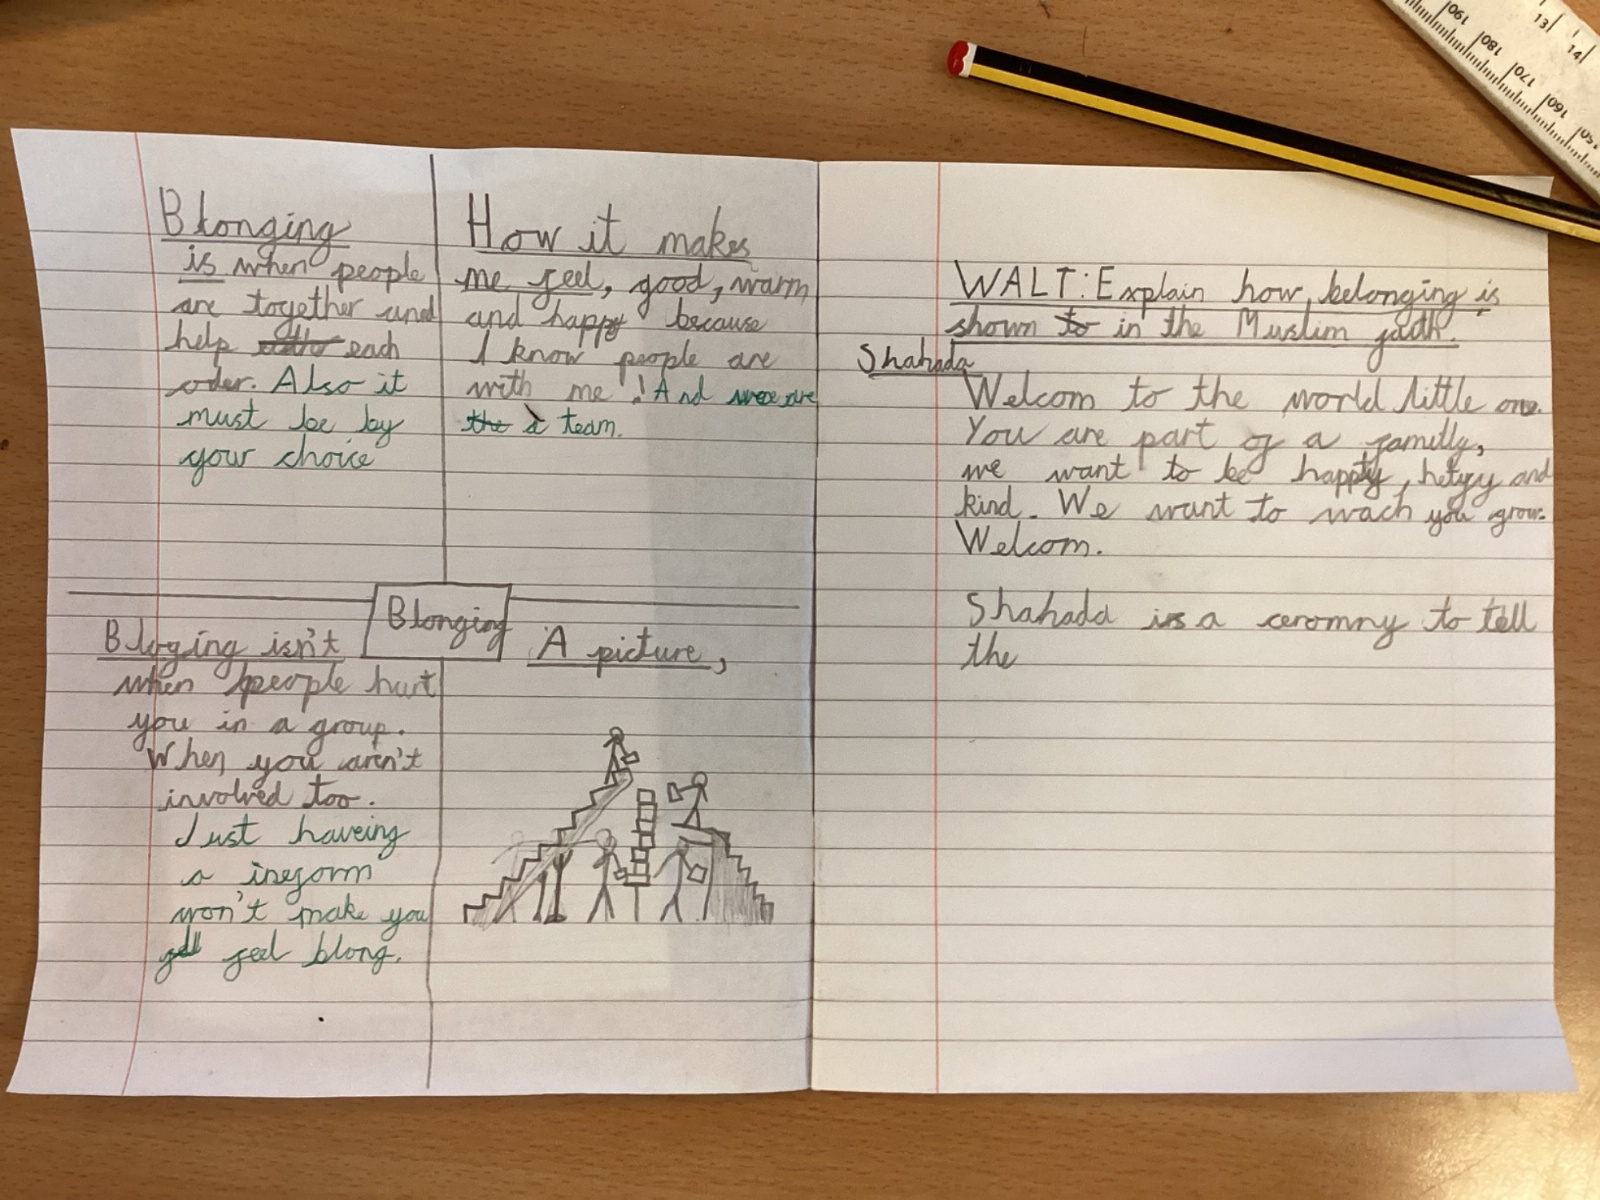 Blonging
is when people
are together and
help each
oder. Also it
must be by
your choice
How it makes
me feel, good, warm
and happy because
I know people are
with me! And we are
the a team.
Blonging
Bloging isn't
when people hurt
you in a group.
When you aren't
involved too.
Just haveing
a
won't make you
feel blong.
A picture,
WALT: Explain how belonging is
shown to in the Muslim faith.
Shahada
Welcom to the world little one.
You are part of a familly,
we want to be happy, and
kind. We want to wach you grow.
Welcom.
Shahada is a ceromny to tell
the
13
14
190
180
170
160